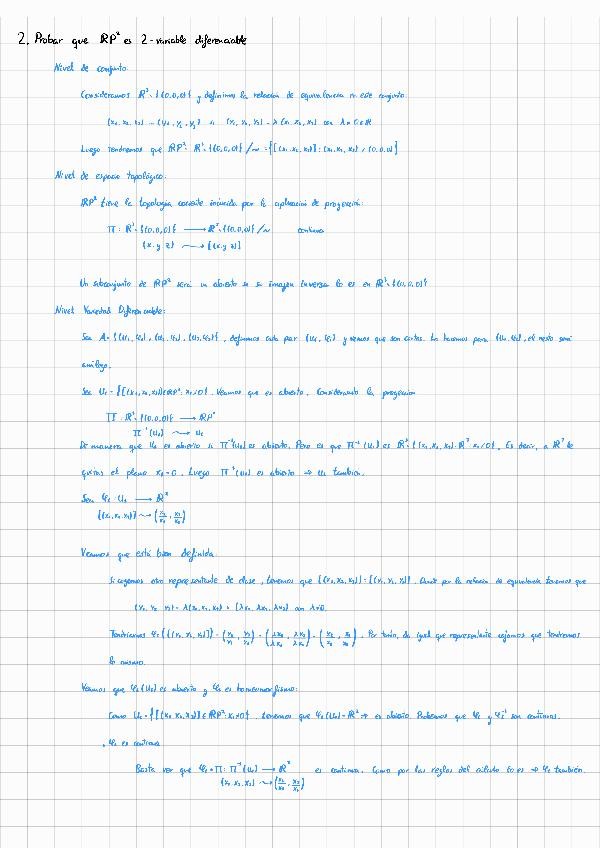 2. Probar que RP² es 2-variable diferenciable
Nivel de conjunto:
Consideramos R³\{(0,0,0)} y definimos la relación de equivalencia en este conjunto
(x₁,x₂,x₃) ~ (y₁,y₂,y₃) si (y₁,y₂,y₃) = λ(x₁,x₂,x₃) con λ≠0∈R
Luego tendremos que RP² = R³\{(0,0,0)}/~ = {[(x₁,x₂,x₃)]: (x₁,x₂,x₃) ≠ (0,0,0)}
Nivel de espacio topológico:
RP² tiene la topología cociente inducida por la aplicación de proyección:
Π: R³\{(0,0,0)} → R³\{(0,0,0)}/~ continua
(x,y,z) ⇝ [(x,y,z)]
Un subconjunto de RP² será un abierto si su imagen inversa lo es en R³\{(0,0,0)}
Nivel Variedad Diferenciable:
Sea A = {(U₁,φ₁), (U₂,φ₂), (U₃,φ₃)}, definimos cada par (Uᵢ,φᵢ) y vemos que son cartas. Lo hacemos para (U₁,φ₁), el resto será
análogo.
Sea U₁ = {[(x₁,x₂,x₃)]∈RP²: x₁≠0}. Veamos que es abierto. Considerando la proyección
Π: R³\{(0,0,0)} → RP²
Π⁻¹(U₁) ⇝ U₁
De manera que U₁ es abierto si Π⁻¹(U₁) es abierto. Pero es que Π⁻¹(U₁) es R³\{(x₁,x₂,x₃)∈R³: x₁=0}. Es decir, a R³ le
quitas el plano x₁=0. Luego Π⁻¹(U₁) es abierto ⇒ U₁ también.
Sea φ₁: U₁ → R²
[(x₁,x₂,x₃)] ⇝ (x₂/x₁, x₃/x₁)
Veamos que está bien definida.
Si cogemos otro representante de clase, tenemos que [(x₁,x₂,x₃)] = [(y₁,y₂,y₃)]. Donde por la relación de equivalencia tenemos que
(y₁,y₂,y₃) = λ(x₁,x₂,x₃) = (λx₁,λx₂,λx₃) con λ≠0.
Tendríamos φ₁([(y₁,y₂,y₃)]) = (y₂/y₁, y₃/y₁) = (λx₂/λx₁, λx₃/λx₁) = (x₂/x₁, x₃/x₁). Por tanto, da igual que representante cojamos que tendremos
lo mismo.
Veamos que φ₁(U₁) es abierto y φ₁ es homeomorfismo:
Como U₁ = {[(x₁,x₂,x₃)]∈RP²: x₁≠0} tenemos que φ₁(U₁) = R² ⇒ es abierto. Probemos que φ₁ y φ₁⁻¹ son continuas.
· φ₁ es continua
Basta ver que φ₁∘Π: Π⁻¹(U₁) → R² es continua. Como por las reglas del cálculo lo es ⇒ φ₁ también.
(x₁,x₂,x₃) ⇝ (x₂/x₁, x₃/x₁)